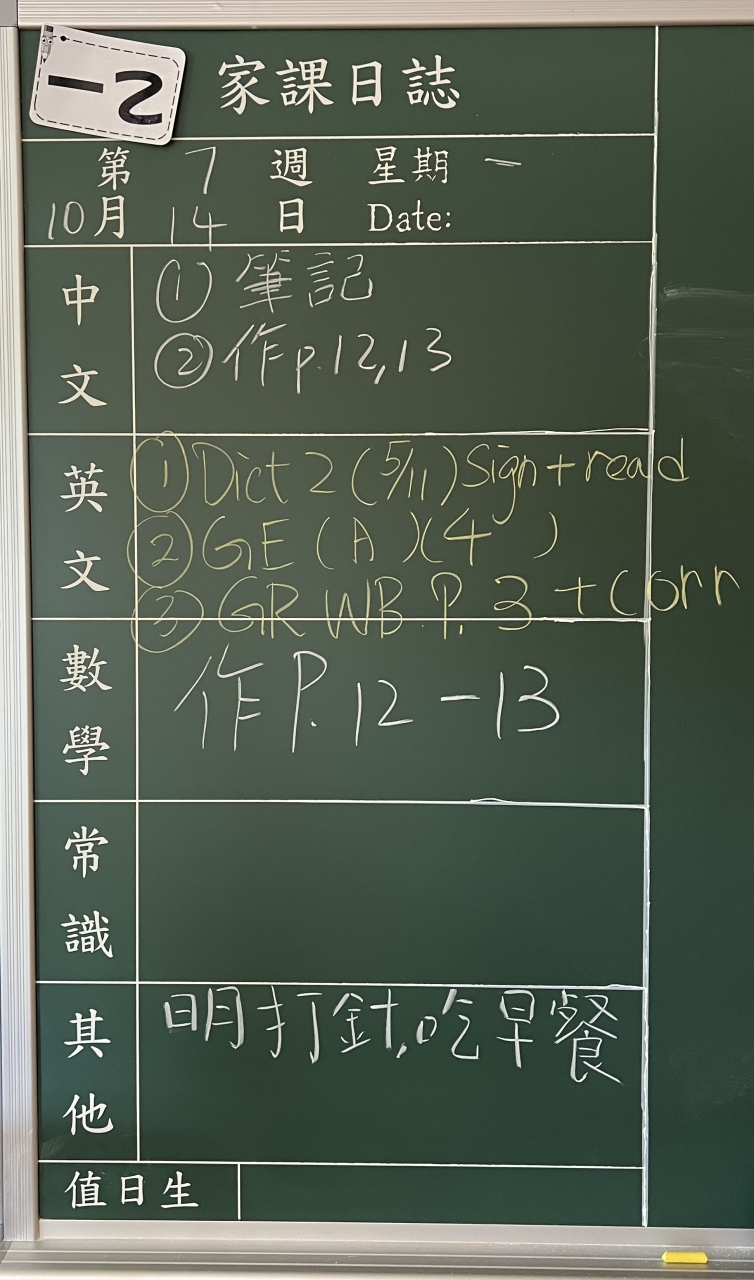 一乙
家課日誌
第 7 週 星期 一
10月 14 日 Date:
中文
① 筆記
② 作p.12,13
英文
① Dict 2 (5/11) Sign + read
② GE (A)(4 )
③ GR WB P. 3 + Corr
數學
作P.12-13
常識
其他
明打針,吃早餐
值日生